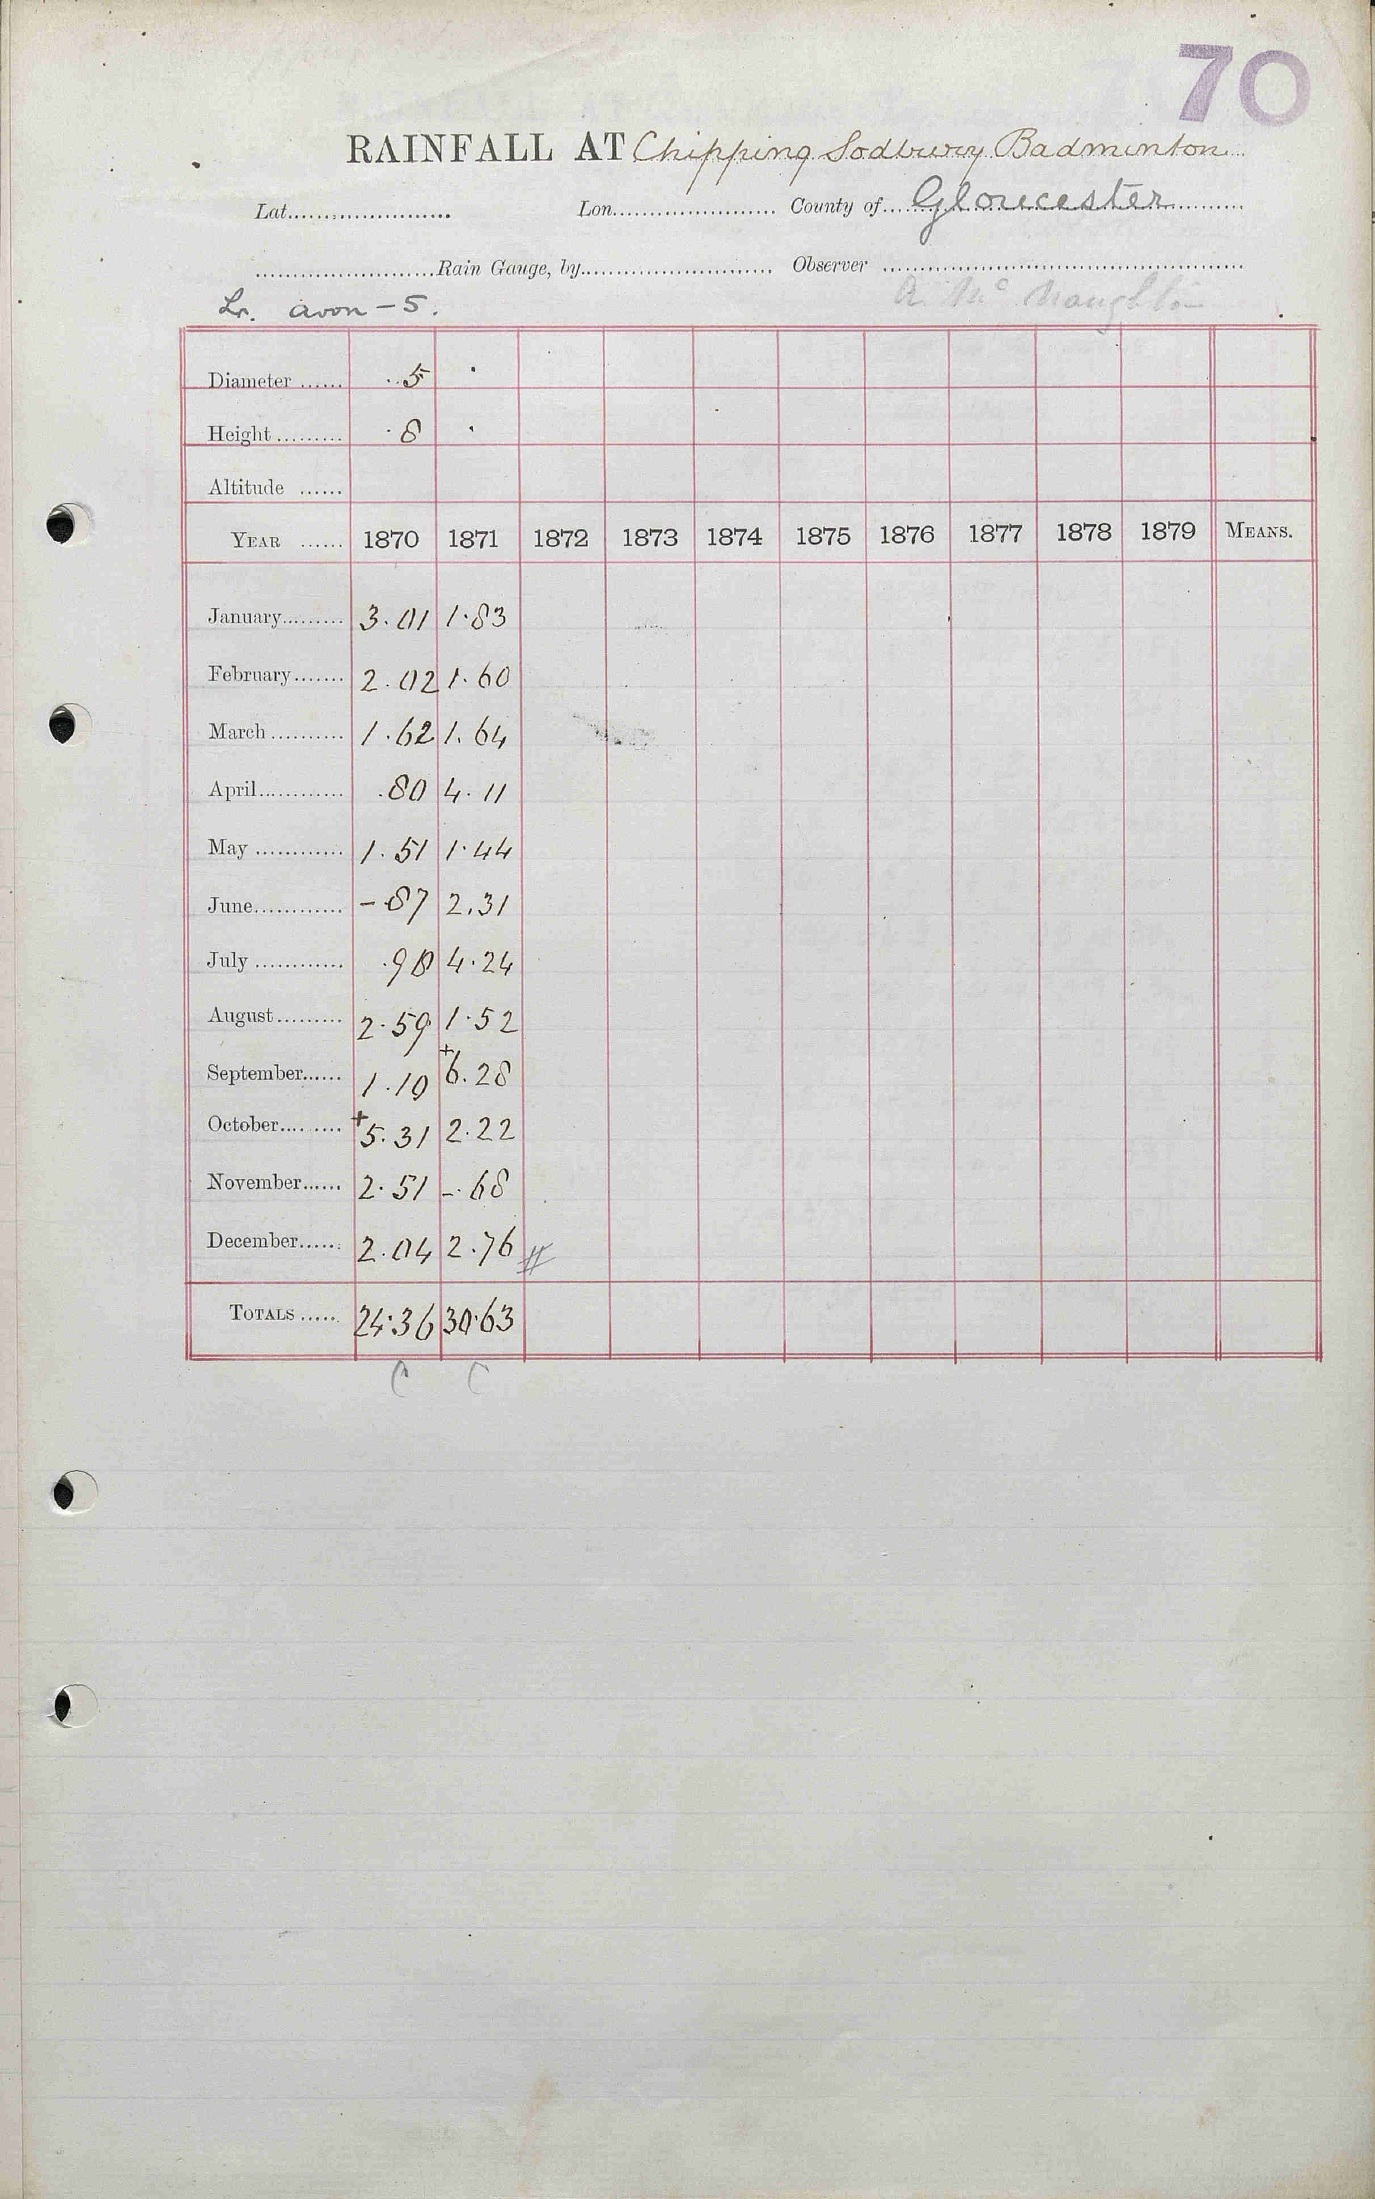 70
RAINFALL AT Chipping Sodbury Badminton
Lat. Lon. County of Gloucester
Rain Gauge, by Observer
A. Mc Naughton
Lr. Avon - 5.
Diameter ...... 5
Height ......... 8
Altitude ......
YEAR ...... 1870 1871 1872 1873 1874 1875 1876 1877 1878 1879 MEANS.
January......... 3.01 1.83
February....... 2.02 1.60
March .......... 1.62 1.64
April............ .80 4.11
May ............ 1.51 1.44
June............ -.87 2.31
July ............ .98 4.24
August......... 2.59 1.52
September...... 1.10 +6.28
October......... +5.31 2.22
November...... 2.51 -.68
December...... 2.04 2.76 #
TOTALS ..... 24.36 30.63
C C